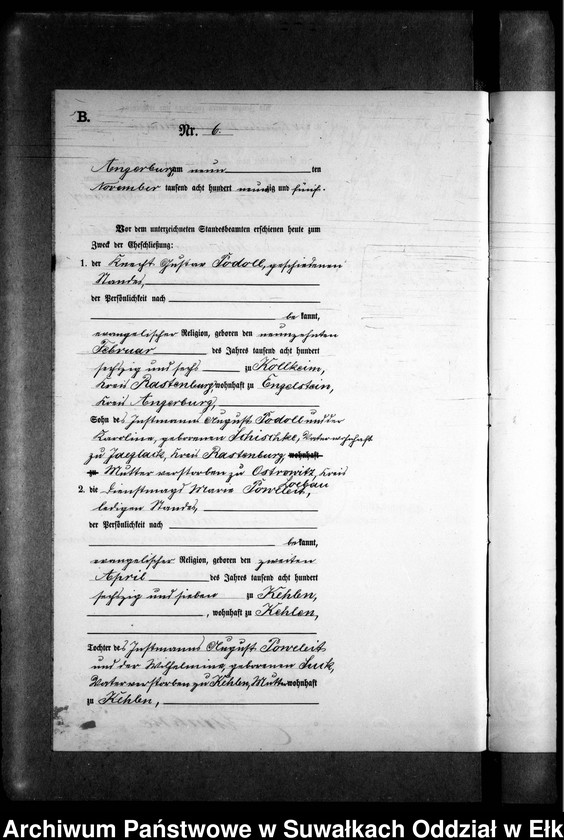 B.
Nr. 6.
Angerburg am neun ten
November tausend acht hundert neunzig und fünf.
Vor dem unterzeichneten Standesbeamten erschienen heute zum
Zweck der Eheschließung:
1. der Knecht Gustav Podoll, geschiedenen
Standes,
der Persönlichkeit nach
be kannt,
evangelischer Religion, geboren den neunzehnten
Februar des Jahres tausend acht hundert
sechszig und sechs zu Kollkeim,
Kreis Rastenburg, wohnhaft zu Engelstein,
Kreis Angerburg,
Sohn des Instmanns August Podoll und der
Karoline, geborenen Schischke, Vater wohnhaft
zu Jaeglack, Kreis Rastenburg, wohnhaft
zu Mutter verstorben zu Ostrowitz, Kreis
Loebau
2. die Dienstmagd Marie Poweleit,
ledigen Standes,
der Persönlichkeit nach
be kannt,
evangelischer Religion, geboren den zweiten
April des Jahres tausend acht hundert
sechszig und sieben zu Kehlen,
, wohnhaft zu Kehlen,
Tochter des Instmanns August Poweleit
und der Wilhelmine, geborenen Susk,
Vater verstorben zu Kehlen, Mutter wohnhaft
zu Kehlen,
Archiwum Państwowe w Suwałkach Oddział w Ełk